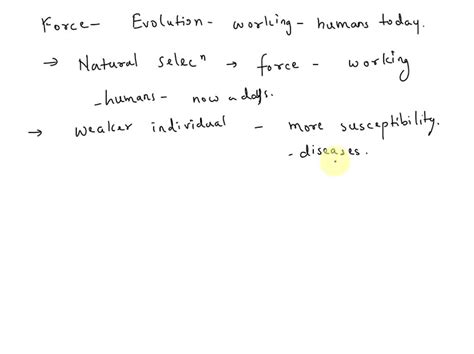 Force- Evolution- working- humans today.
→ Natural selecⁿ → force - working
-humans- now a days.
→ weaker individual - more susceptibility.
- diseases.